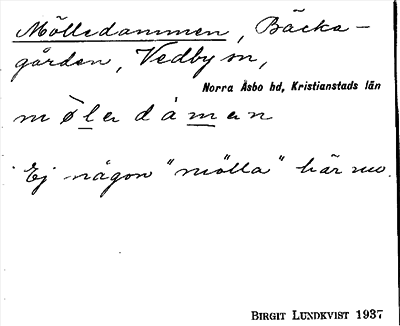 Mölledammen, Bäcka-
gården, Vedby sn,
Norra Åsbo hd, Kristianstads län
mølədåmən
Ej någon "mölla" här nu.
BIRGIT LUNDKVIST 1937